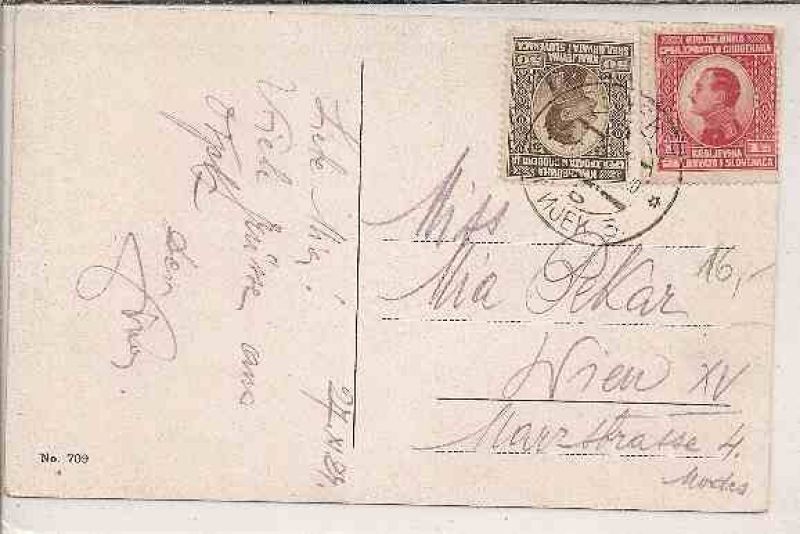 Liebe Mia!
Viele Grüsse aus
Dein
27.XI.24.
No. 709
Miss
Mia Pekar
Wien XV
Marzstrasse 4.
16,-
КРАЉЕВИНА
СРБА, ХРВАТА И СЛОВЕНАЦА
KRALJEVINA
SRBA, HRVATA I SLOVENACA
КРАЉЕВИНА
СРБА, ХРВАТА И СЛОВЕНАЦА
KRALJEVINA
HRVATA I SLOVENACA
ИЈЕК